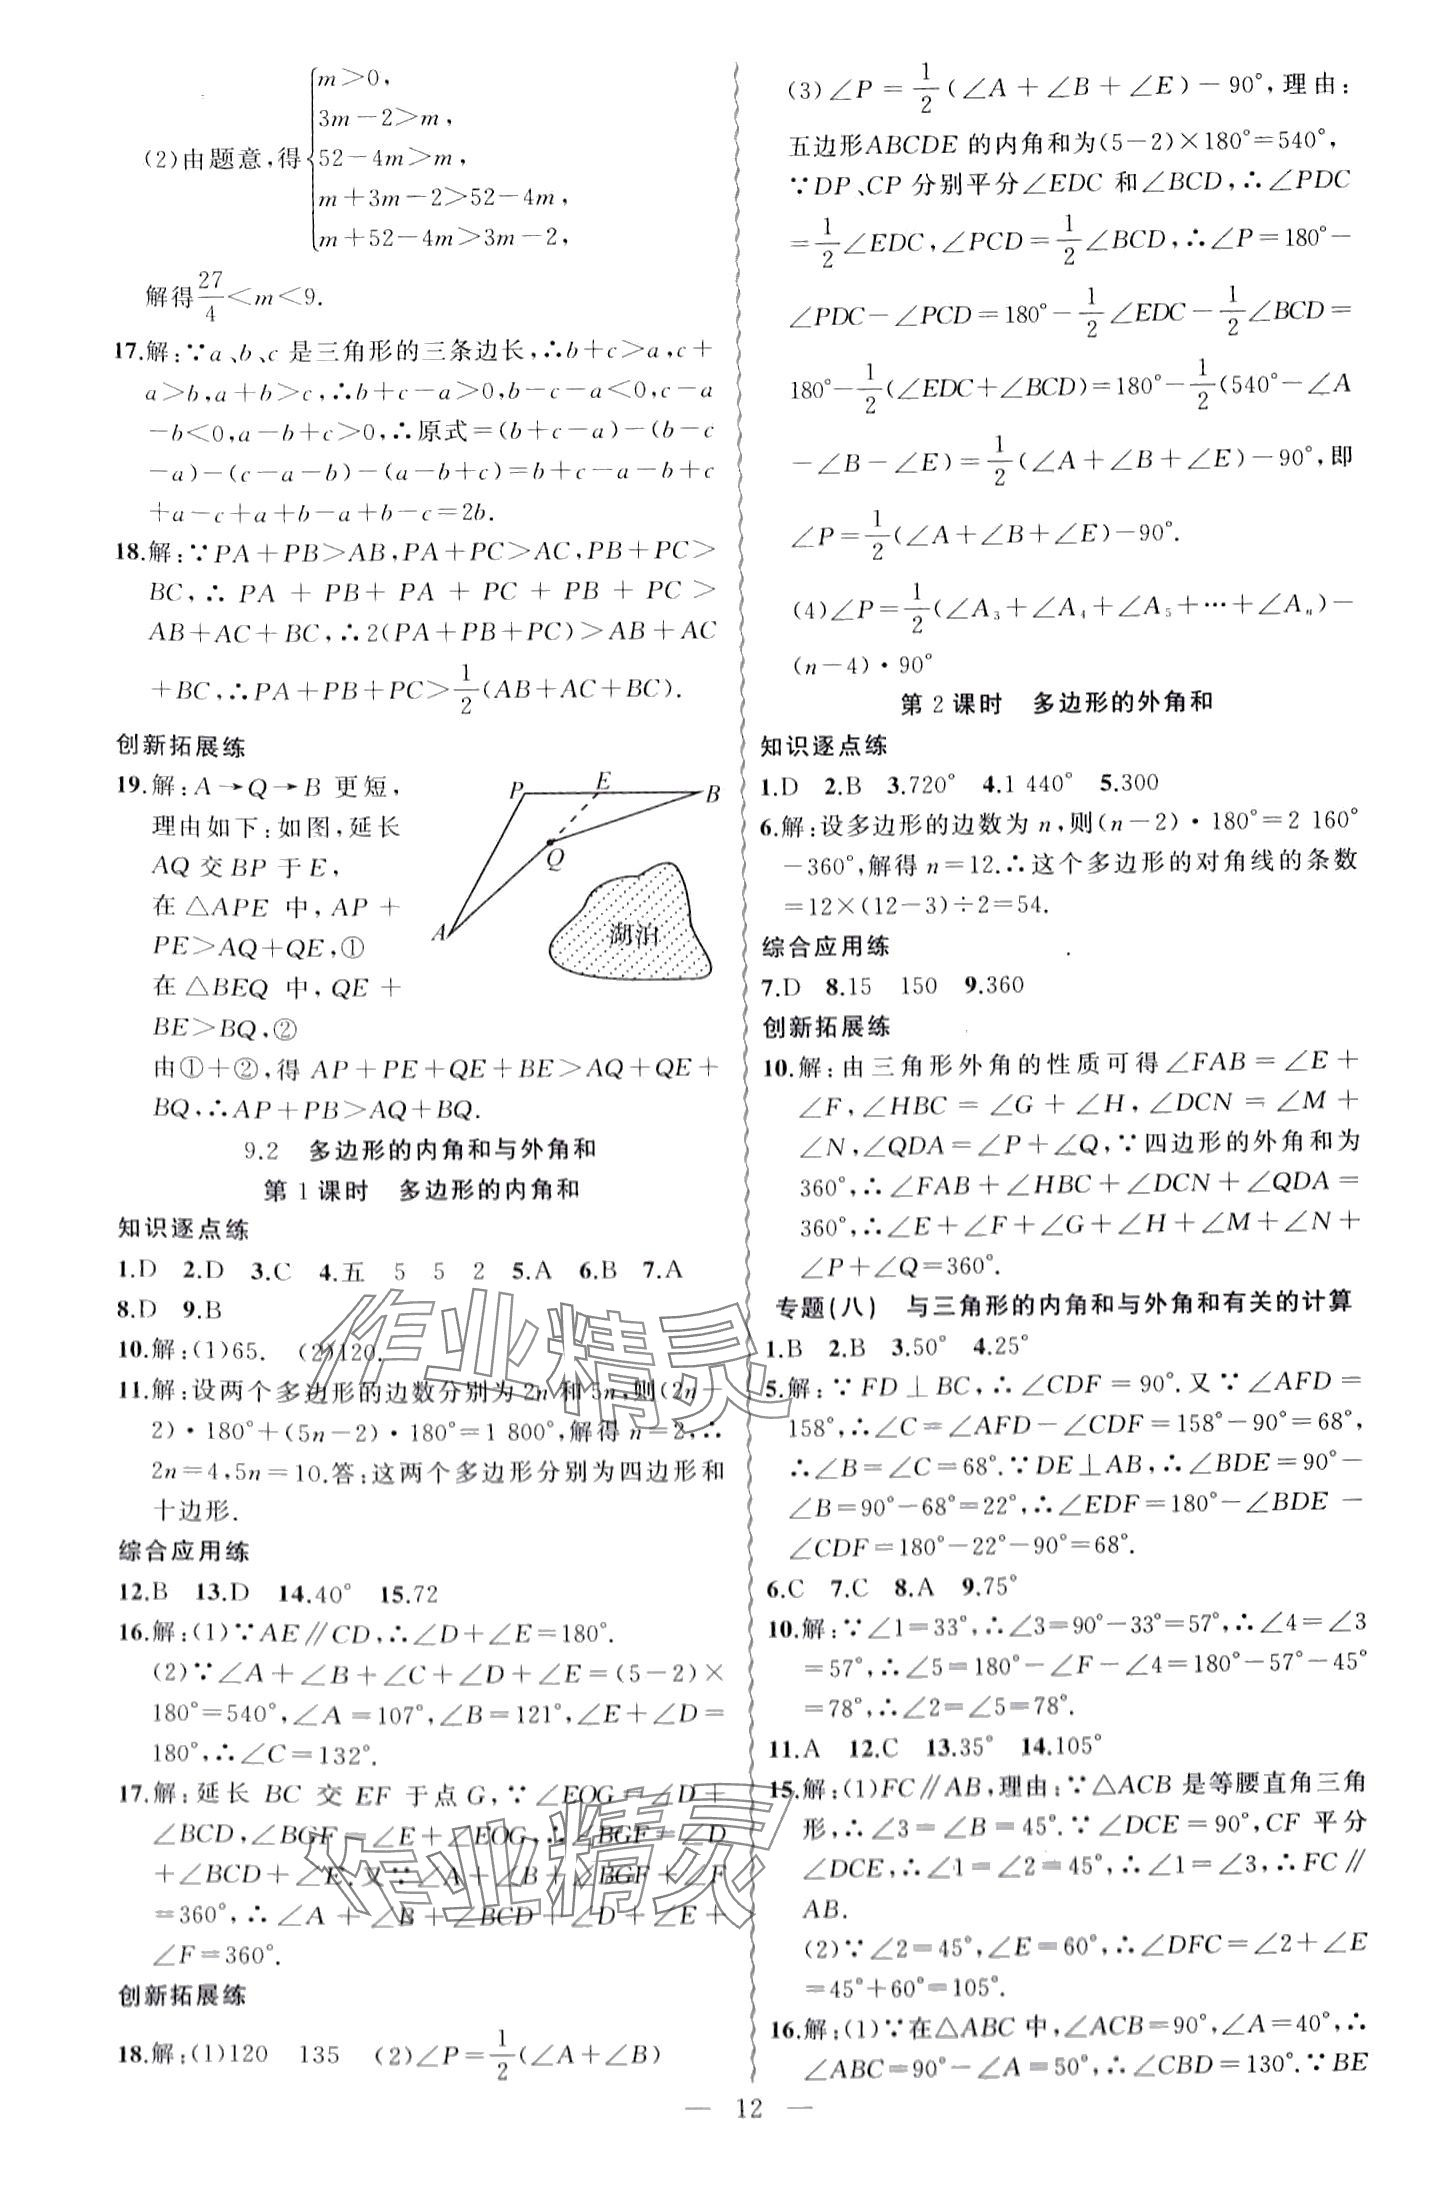 (2)由题意,得{m>0,
3m-2>m,
52-4m>m,
m+3m-2>52-4m,
m+52-4m>3m-2,
解得27/4<m<9.
17.解:∵a、b、c是三角形的三条边长,∴b+c>a,c+
a>b,a+b>c,∴b+c-a>0,b-c-a<0,c-a
-b<0,a-b+c>0,∴原式=(b+c-a)-(b-c
-a)-(c-a-b)-(a-b+c)=b+c-a-b+c
+a-c+a+b-a+b-c=2b.
18.解:∵PA+PB>AB,PA+PC>AC,PB+PC>
BC,∴PA+PB+PA+PC+PB+PC>
AB+AC+BC,∴2(PA+PB+PC)>AB+AC
+BC,∴PA+PB+PC>1/2(AB+AC+BC).
创新拓展练
19.解:A→Q→B更短,
理由如下:如图,延长
AQ交BP于E,
在△APE中,AP+
PE>AQ+QE,①
在△BEQ中,QE+
BE>BQ,②
P E B
Q
A
湖泊
由①+②,得AP+PE+QE+BE>AQ+QE+
BQ,∴AP+PB>AQ+BQ.
9.2 多边形的内角和与外角和
第1课时 多边形的内角和
知识逐点练
1.D 2.D 3.C 4.五 5 5 2 5.A 6.B 7.A
8.D 9.B
10.解:(1)65. (2)120.
11.解:设两个多边形的边数分别为2n和5n,则(2n-
2)·180°+(5n-2)·180°=1 800°,解得n=2,∴
2n=4,5n=10.答:这两个多边形分别为四边形和
十边形.
综合应用练
12.B 13.D 14.40° 15.72
16.解:(1)∵AE∥CD,∴∠D+∠E=180°.
(2)∵∠A+∠B+∠C+∠D+∠E=(5-2)×
180°=540°,∠A=107°,∠B=121°,∠E+∠D=
180°,∴∠C=132°.
17.解:延长BC交EF于点G,∵∠EOG=∠D+
∠BCD,∠BGF=∠E+∠EOG,∴∠BGF=∠D
+∠BCD+∠E.又∵∠A+∠B+∠BGF+∠F
=360°,∴∠A+∠B+∠BCD+∠D+∠E+
∠F=360°.
创新拓展练
18.解:(1)120 135 (2)∠P=1/2(∠A+∠B)
(3)∠P=1/2(∠A+∠B+∠E)-90°,理由:
五边形ABCDE的内角和为(5-2)×180°=540°,
∵DP、CP分别平分∠EDC和∠BCD,∴∠PDC
=1/2∠EDC,∠PCD=1/2∠BCD,∴∠P=180°-
∠PDC-∠PCD=180°-1/2∠EDC-1/2∠BCD=
180°-1/2(∠EDC+∠BCD)=180°-1/2(540°-∠A
-∠B-∠E)=1/2(∠A+∠B+∠E)-90°,即
∠P=1/2(∠A+∠B+∠E)-90°.
(4)∠P=1/2(∠A₃+∠A₄+∠A₅+…+∠Aₙ)-
(n-4)·90°
第2课时 多边形的外角和
知识逐点练
1.D 2.B 3.720° 4.1 440° 5.300
6.解:设多边形的边数为n,则(n-2)·180°=2 160°
-360°,解得n=12.∴这个多边形的对角线的条数
=12×(12-3)÷2=54.
综合应用练
7.D 8.15 150 9.360
创新拓展练
10.解:由三角形外角的性质可得∠FAB=∠E+
∠F,∠HBC=∠G+∠H,∠DCN=∠M+
∠N,∠QDA=∠P+∠Q,∵四边形的外角和为
360°,∴∠FAB+∠HBC+∠DCN+∠QDA=
360°,∴∠E+∠F+∠G+∠H+∠M+∠N+
∠P+∠Q=360°.
专题(八) 与三角形的内角和与外角和有关的计算
1.B 2.B 3.50° 4.25°
5.解:∵FD⊥BC,∴∠CDF=90°.又∵∠AFD=
158°,∴∠C=∠AFD-∠CDF=158°-90°=68°,
∴∠B=∠C=68°.∵DE⊥AB,∴∠BDE=90°-
∠B=90°-68°=22°,∴∠EDF=180°-∠BDE-
∠CDF=180°-22°-90°=68°.
6.C 7.C 8.A 9.75°
10.解:∵∠1=33°,∴∠3=90°-33°=57°,∴∠4=∠3
=57°,∴∠5=180°-∠F-∠4=180°-57°-45°
=78°,∴∠2=∠5=78°.
11.A 12.C 13.35° 14.105°
15.解:(1)FC∥AB,理由:∵△ACB是等腰直角三角
形,∴∠3=∠B=45°.∵∠DCE=90°,CF平分
∠DCE,∴∠1=∠2=45°,∴∠1=∠3,∴FC∥
AB.
(2)∵∠2=45°,∠E=60°,∴∠DFC=∠2+∠E
=45°+60°=105°.
16.解:(1)∵在△ABC中,∠ACB=90°,∠A=40°,∴
∠ABC=90°-∠A=50°,∴∠CBD=130°.∵BE
— 12 —
作业精灵
作业精灵